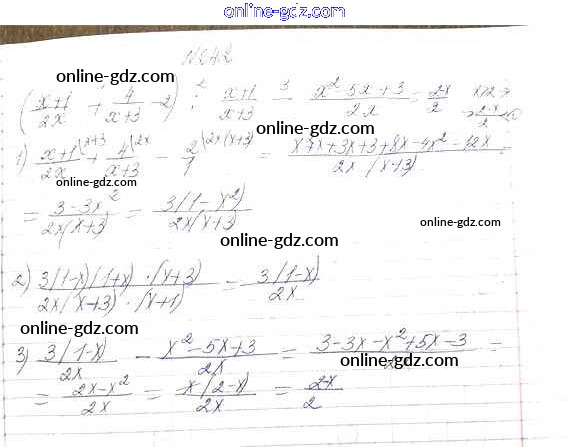 online-gdz.com
N242
online-gdz.com
(x+1/2x + 4/x+3 - 2) : x+1/x+3 - x²-5x+3/2x = 2-x/2 x>2 →
online-gdz.com
→ 2-x/2 <0
1) x+1/2x \x+3 + 4/x+3 \2x - 2/1 \2x(x+3) = +x+3x+3+8x-4x²-12x/2x(x+3) =
online-gdz.com
= 3-3x²/2x(x+3) = 3(1-x²)/2x(x+3)
online-gdz.com
online-gdz.com
2) 3(1-x)(1+x)·(x+3)/2x(x+3)·(x+1) = 3(1-x)/2x
online-gdz.com
online-gdz.com
3) 3(1-x)/2x - x²-5x+3/2x = 3-3x-x²+5x-3/ =
online-gdz.com
= 2x-x²/2x = x(2-x)/2x = 2-x/2
online-gdz.com